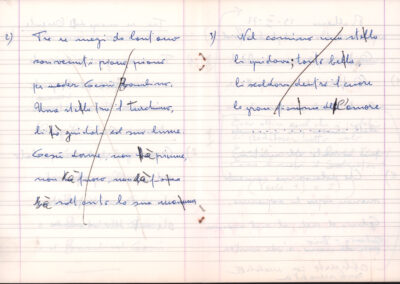 2) Tre re magi da lontano
son venuti piano piano
per veder Gesù Bambino.
Una stella fra il turchino,
li ha guidati col suo lume.
Gesù dorme, non ha piume,
non ha fuoco,
ha soltanto la sua mamma
3) Nel cammino una stella
li guidava; tanto bella,
li scaldava dentro il cuore
la gran fiamma dell'amore
. . . . . . . . . . . . . .